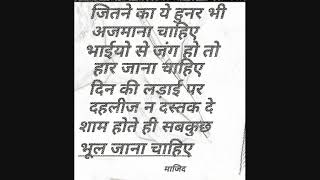 जितने का ये हुनर भी
अजमाना चाहिए
भाईयो से जंग हो तो
हार जाना चाहिए
दिन की लड़ाई पर
दहलीज न दस्तक दे
शाम होते ही सबकुछ
भूल जाना चाहिए
माजिद